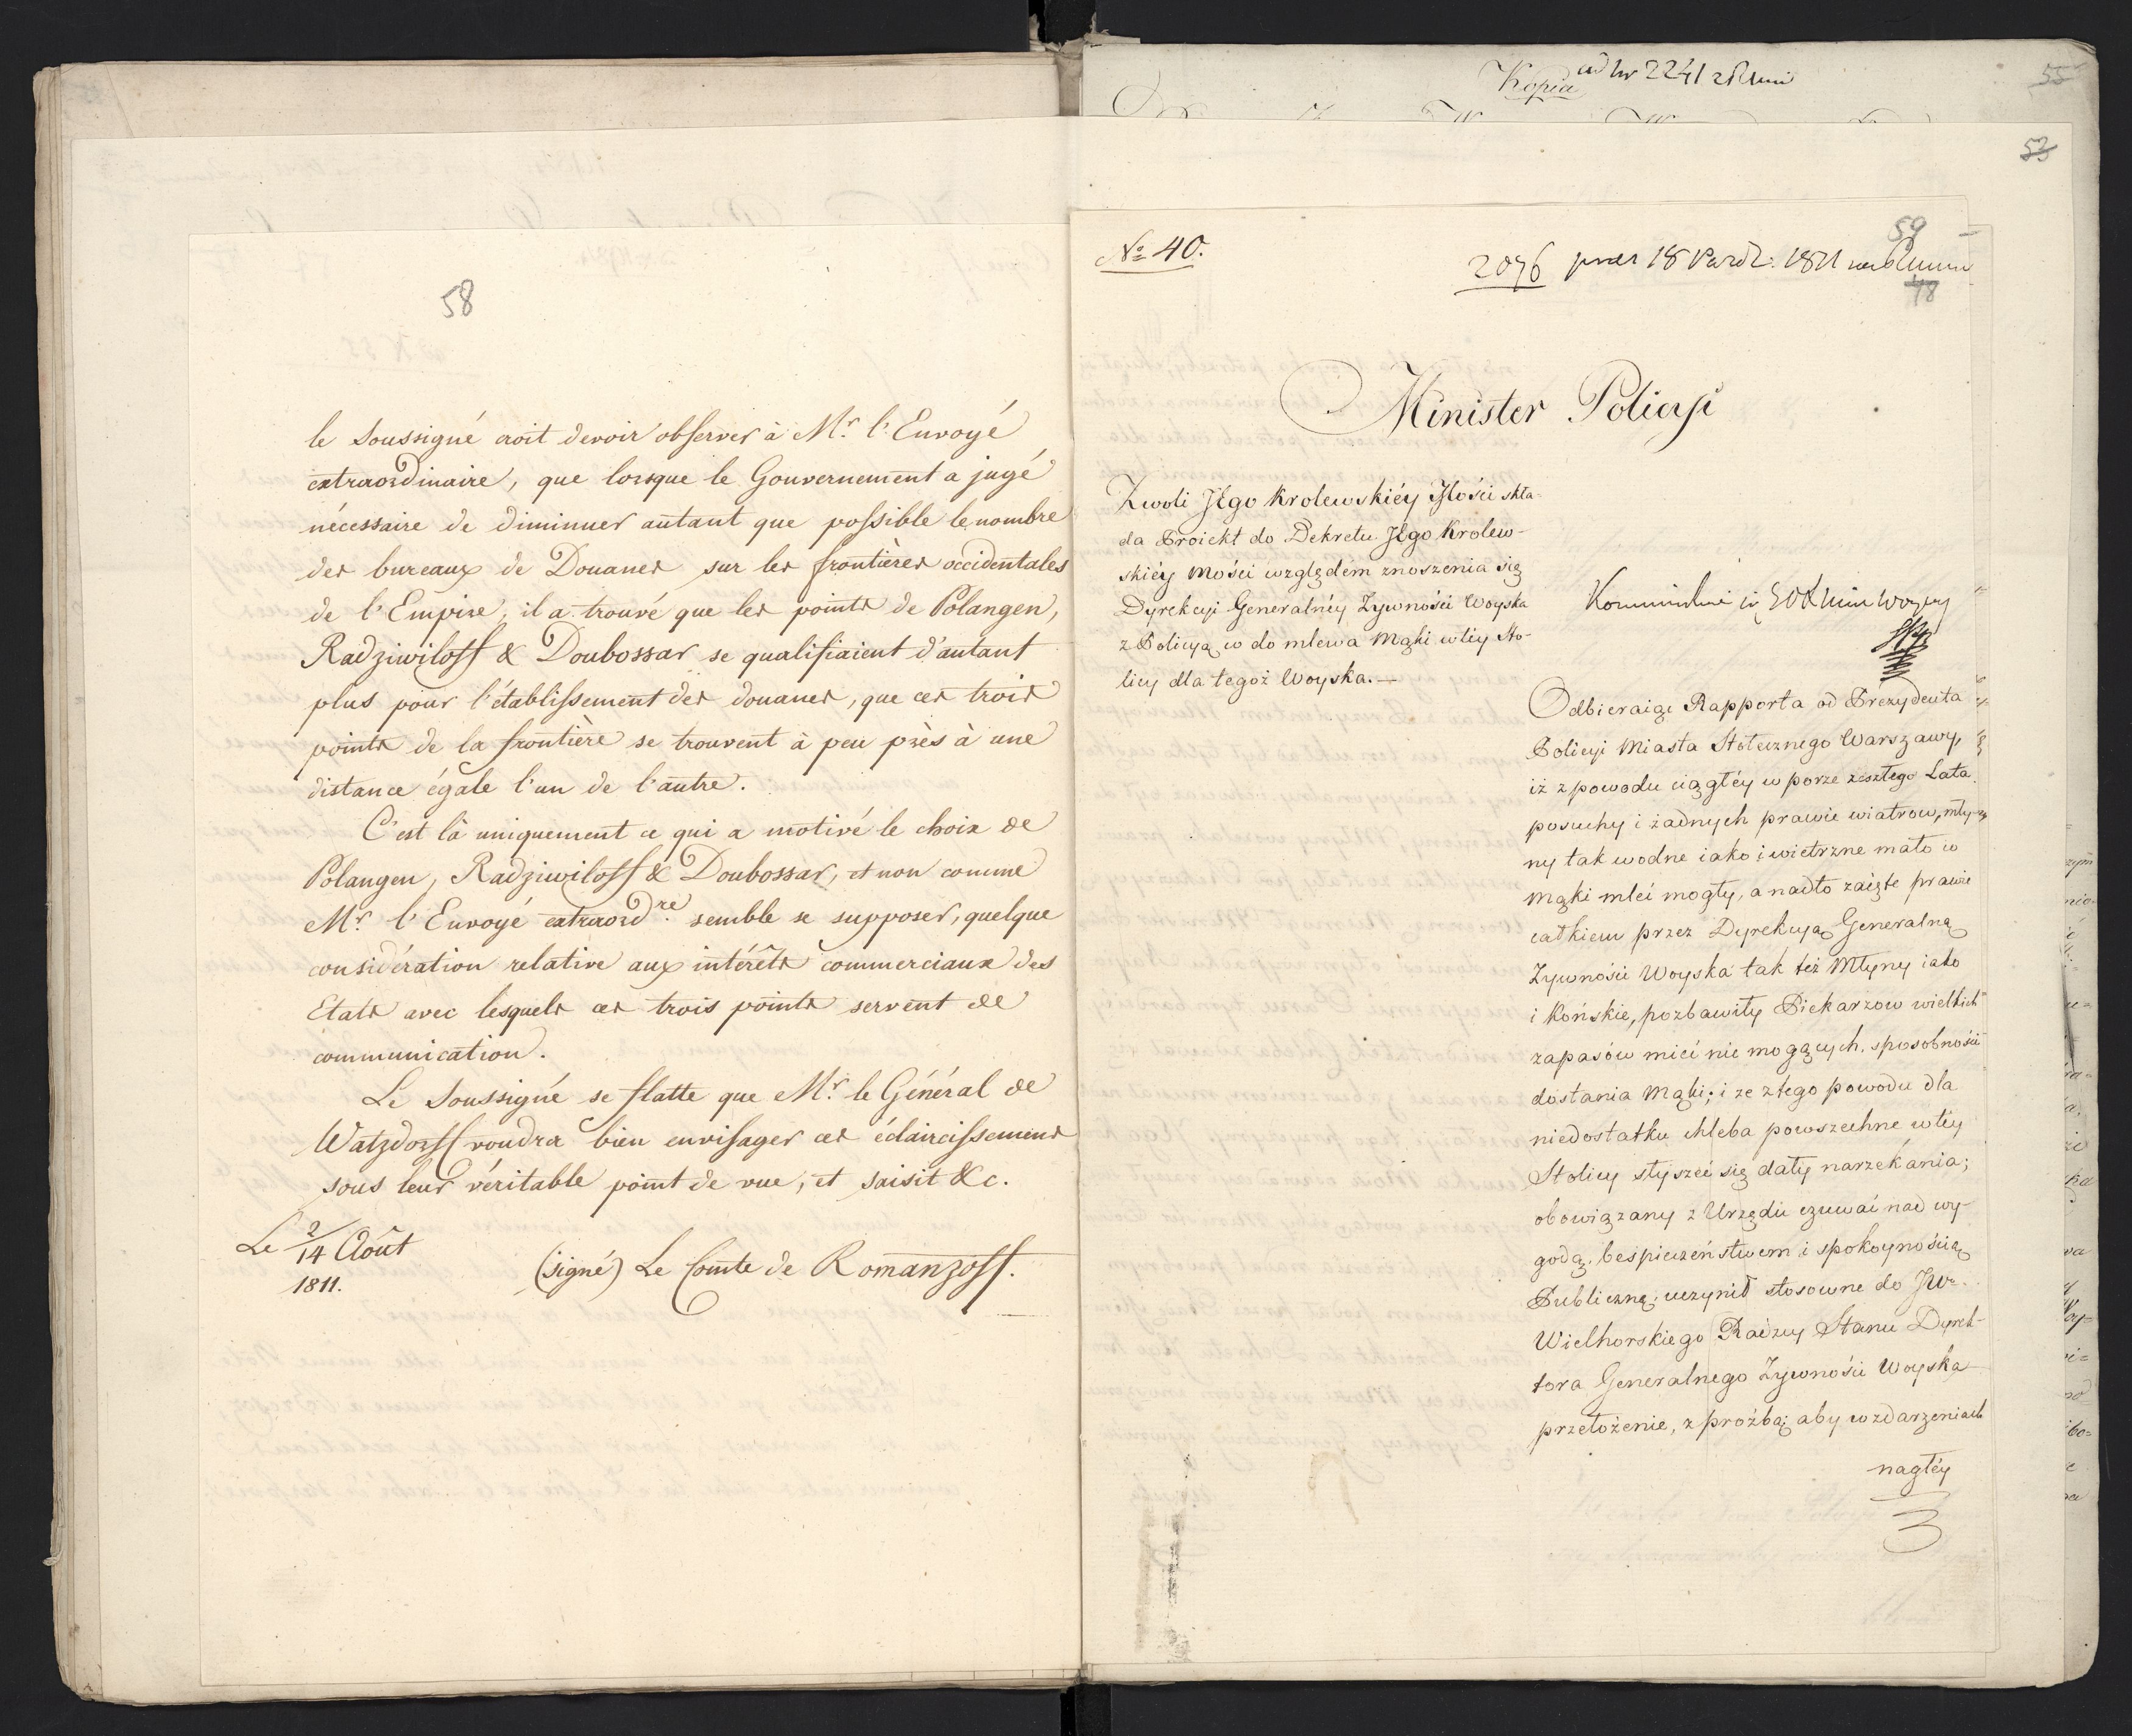 58
le Soussigné croit devoir observer à Mr. l'Envoyé
extraordinaire, que lorsque le Gouvernement a jugé
nécessaire de diminuer autant que possible le nombre
des bureaux de Douanes sur les frontières occidentales
de l'Empire, il a trouvé que les points de Polangen,
Radziwiloff & Doubossar se qualifiaient d'autant
plus pour l'établissement des douanes, que ces trois
points de la frontière se trouvent à peu près à une
distance égale l'un de l'autre.
C'est là uniquement ce qui a motivé le choix de
Polangen, Radziwiloff & Doubossar, et non comme
Mr. l'Envoyé extraordre. semble se supposer, quelque
considération relative aux intérêts commerciaux des
Etats avec lesquels ces trois points servent de
communication.
Le Soussigné se flatte que Mr. le Général de
Watzdorff voudra bien envisager ces éclaircissemens
sous leur véritable point de vue, et saisit &c.
Le 2/14 Août
1811.
(signé) Le Comte de Romanzoff.
Kopia ad Nr 2241
55
53
59
No 40.
2096 18 Paźdz: 1811
48
Minister Policyi
Z woli JKgo Krolewskiéy Mości skła-
da Proiekt do Dekretu JKgo Krolew-
skiéy Mości względem znoszenia się
Dyrekcyi Generalnéy Żywności Woyska
z Policyą w do mlewa Mąki w téy Sto-
licy dla tegoż Woyska.—
Odbieraiąc Rapporta od Prezydenta
Policyi Miasta Stołecznego Warszawy,
iż z powodu ciągłéy w porze zeszłego Lata
posuchy i żadnych prawie wiatrow, mły-
ny tak wodne iako i wietrzne mało w
mąki mleć mogły, a nadto zaięte prawie
całkiem przez Dyrekcyą Generalną
Żywności Woyska tak też Młyny iako
i Końskie, pozbawiły Piekarzow wielkich
zapasów mieć nie mogących, sposobności
dostania Mąki; i ze z tego powodu dla
niedostatku chleba powszechne w téy
Stolicy słyszeć się dały narzekania;
obowiązany z Urzędu czuwać nad wy-
godą, bespieczeństwem i spokoynością
Publiczną; uczynił stosowne do JW.
Wielhorskiego Radzcy Stanu Dyrek-
tora Generalnego Żywności Woyska
przełożenie, z proźbą; aby w zdarzeniach
nagłéy